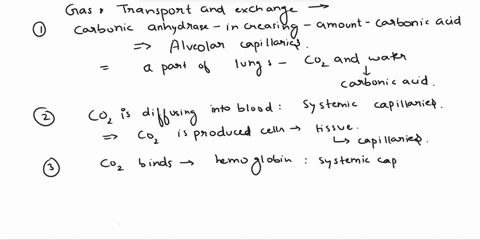 Gas, Transport and exchange →
① Carbonic anhydrase - increasing - amount - carbonic acid
⇒ Alveolar capillaries.
= a part of lungs - CO2 and water
↓
carbonic acid.
② CO2 is diffusing into blood : Systemic capillaries.
⇒ CO2 is produced cells → tissue.
↳ capillaries.
③ CO2 binds → hemoglobin : systemic cap